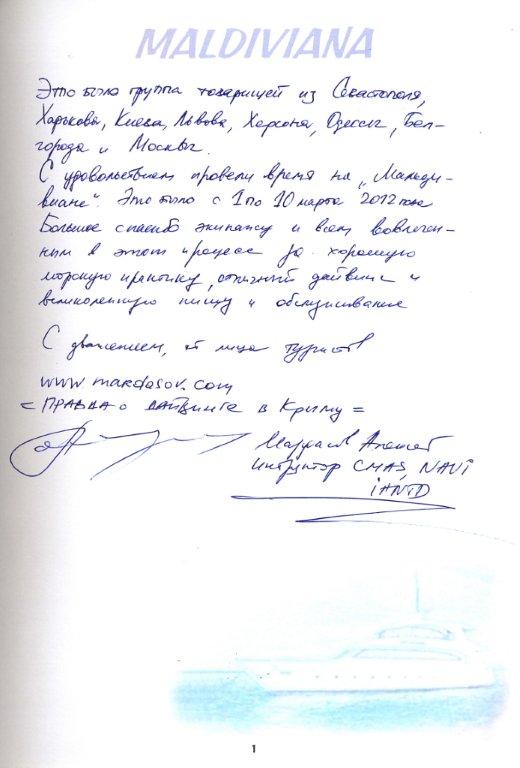 MALDIVIANA
Это была группа товарищей из Севастополя,
Харькова, Киева, Львова, Херсона, Одессы, Бел-
города и Москвы.
С удовольствием провели время на „Мальди-
виане". Это было с 1 по 10 марта 2012 года
Большое спасибо экипажу и всем вовлечен-
ным в этот процесс за хорошую
морскую практику, отличный дайвинг и
великолепную пищу и обслуживание
С уважением, от лица туристов
www.mardasov.com
= ПРАВДА о дайвинге в Крыму =
Мардасов Алексей
инструктор CMAS, NAUI
IANTD
1